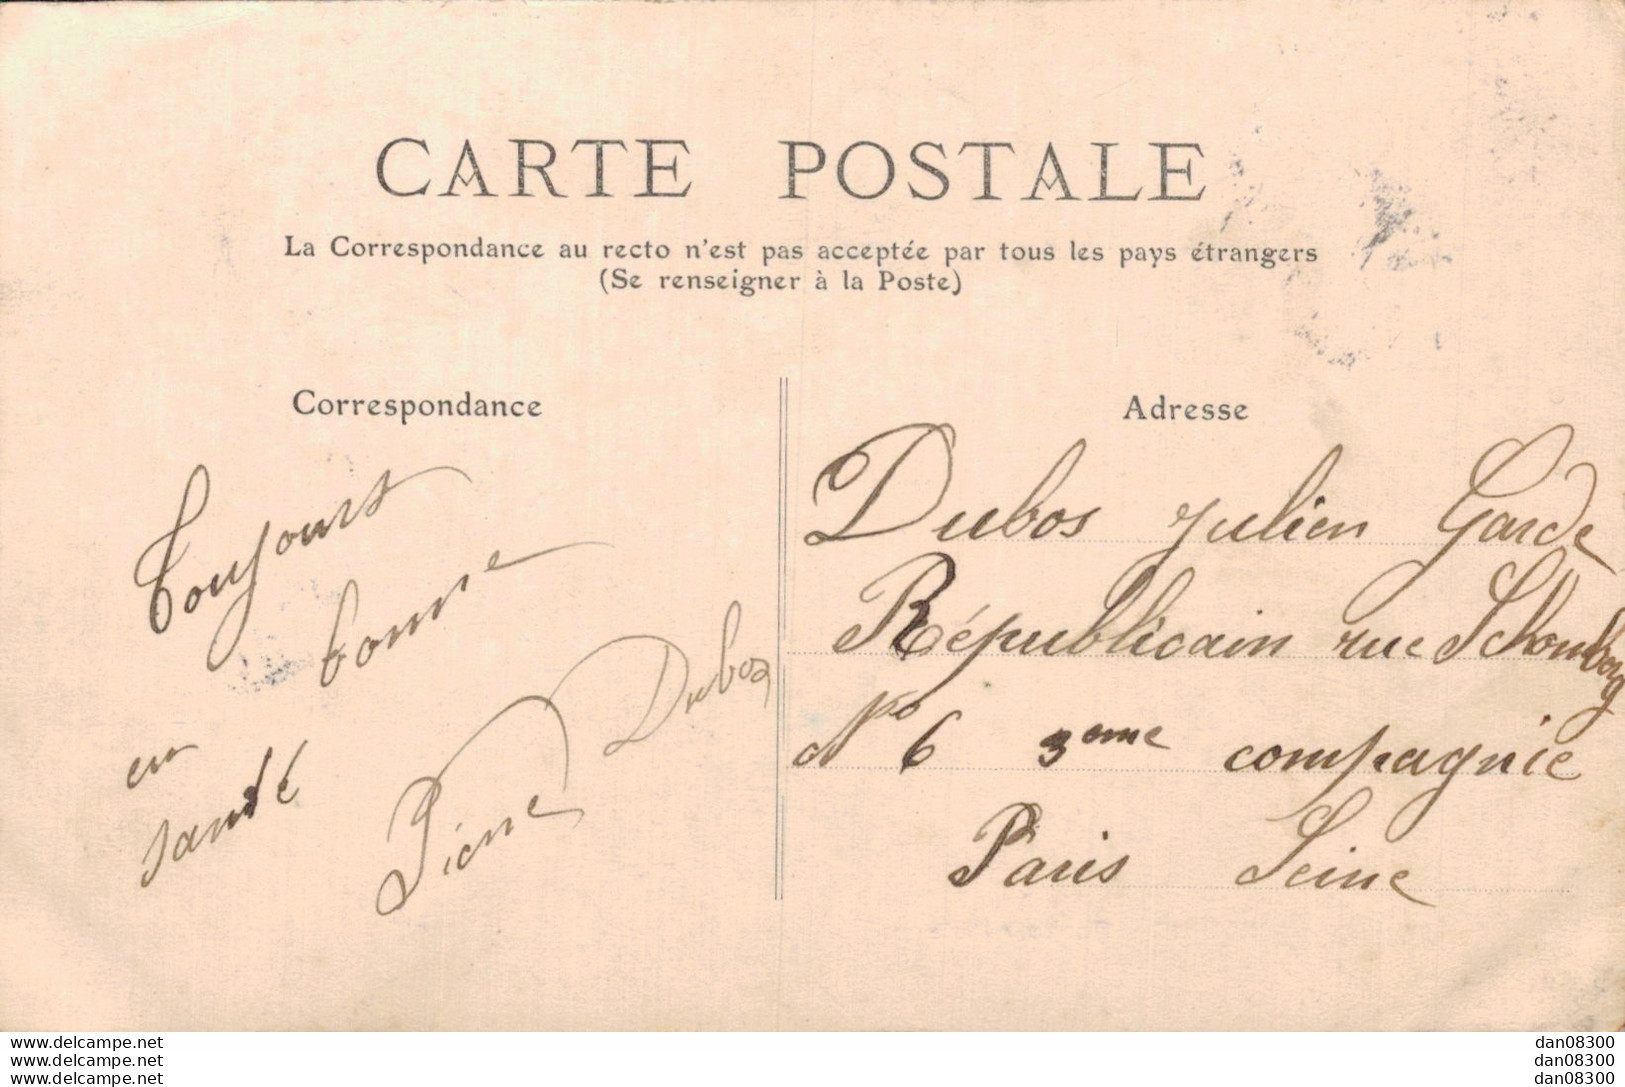 CARTE POSTALE
La Correspondance au recto n'est pas acceptée par tous les pays étrangers
(Se renseigner à la Poste)
Correspondance
Toujours
bonne
en
santé
Pierre Dubos
Adresse
Dubos Julien Garde
Républicain rue Schomberg
N° 6 3eme compagnie
Paris Seine
www.delcampe.net
www.delcampe.net
www.delcampe.net
dan08300
dan08300
dan08300